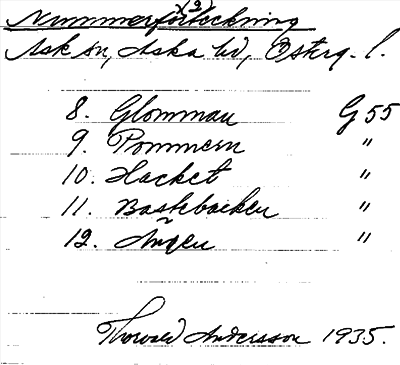 x2)
Nummerförteckning
Ask sn, Aska hd, Österg. l.
8. Glomman G 55
9. Pommern "
10. Hacket "
11. Bastebacken "
12. Ängen "
Thorvald Andersson 1935.